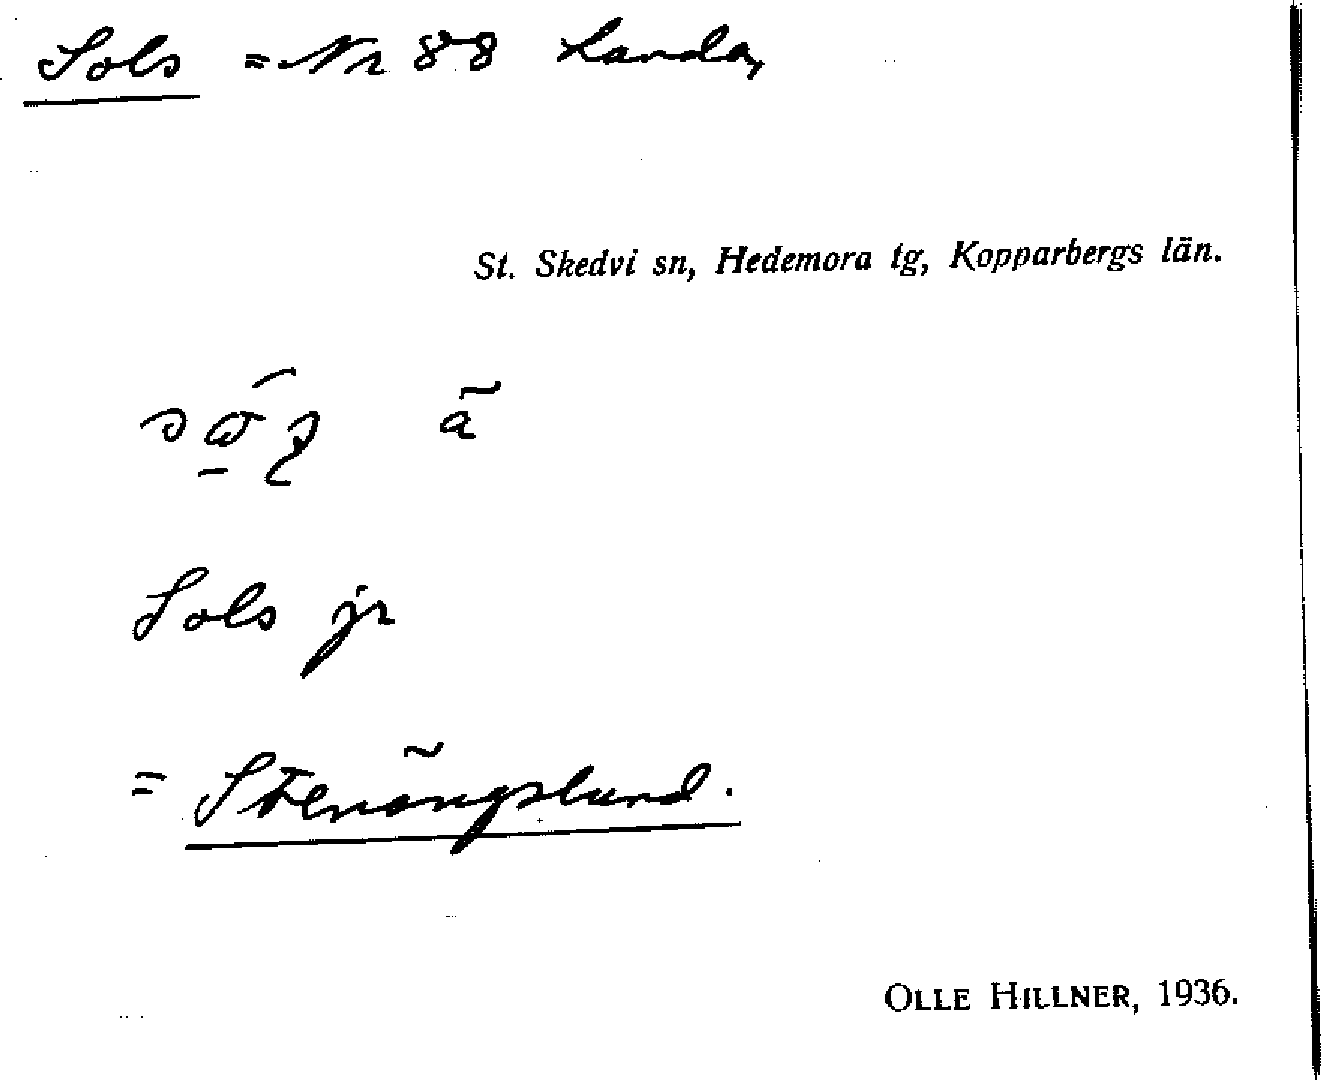 Sols = Nr 88 Landa,
St. Skedvi sn, Hedemora tg, Kopparbergs län.
ã
Sols jr
= Stenängslund.
OLLE HILLNER, 1936.